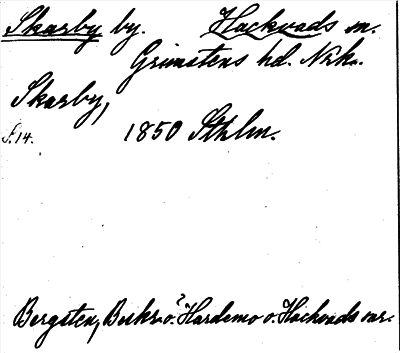 Skarby by. Hackvads sn.
Grimstens hd. Nrk.
Skarby,
S. 14. 1850 Sthlm.
Bergsten, Beskr. o. Hardemo o. Hackvads sar.